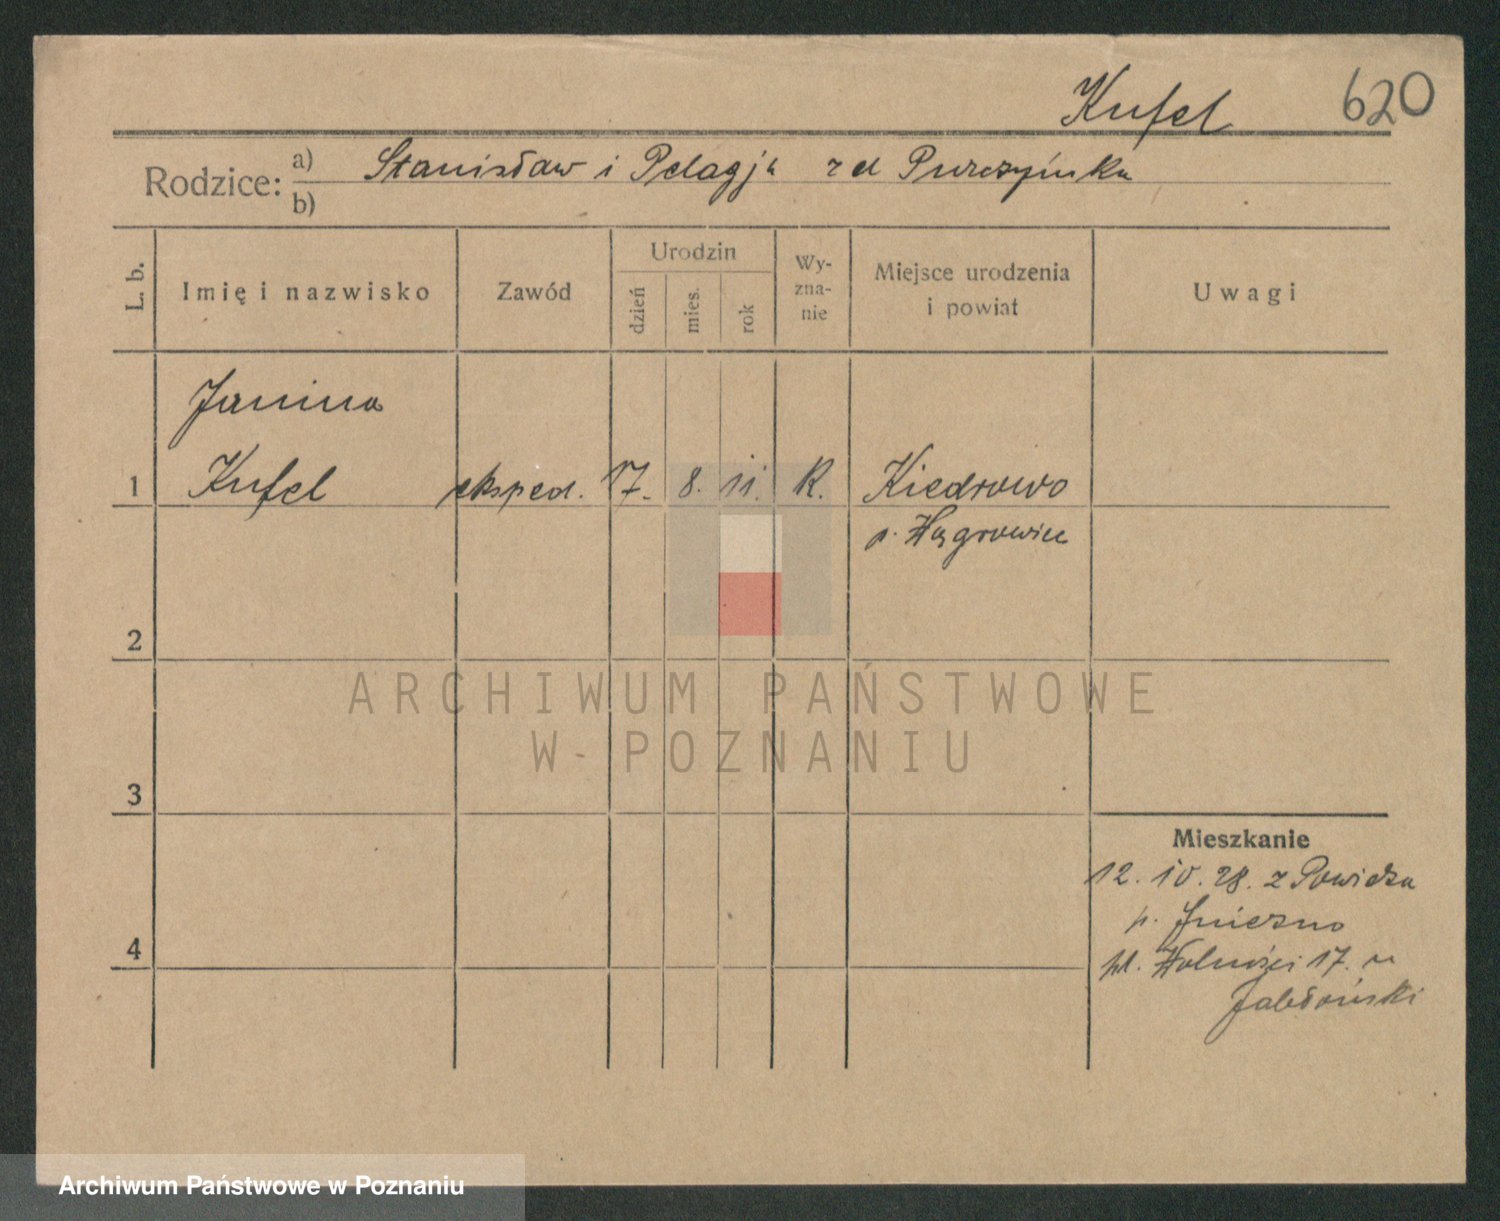 Kufel 620
Rodzice: a) Stanisław i Pelagja
b)
L. b. Imię i nazwisko Zawód Urodzin dzień mies. rok Wyznanie Miejsce urodzenia i powiat Uwagi
Janina
1 Kufel eksped. 17. 8. 11. R. Kiedrowo
p. Wągrowiec
2
ARCHIWUM PAŃSTWOWE
W POZNANIU
3
Mieszkanie
12. 10. 28. z Powidza
p. Gniezno
4
pl. Wolności 17. u
Jabłoński
Archiwum Państwowe w Poznaniu